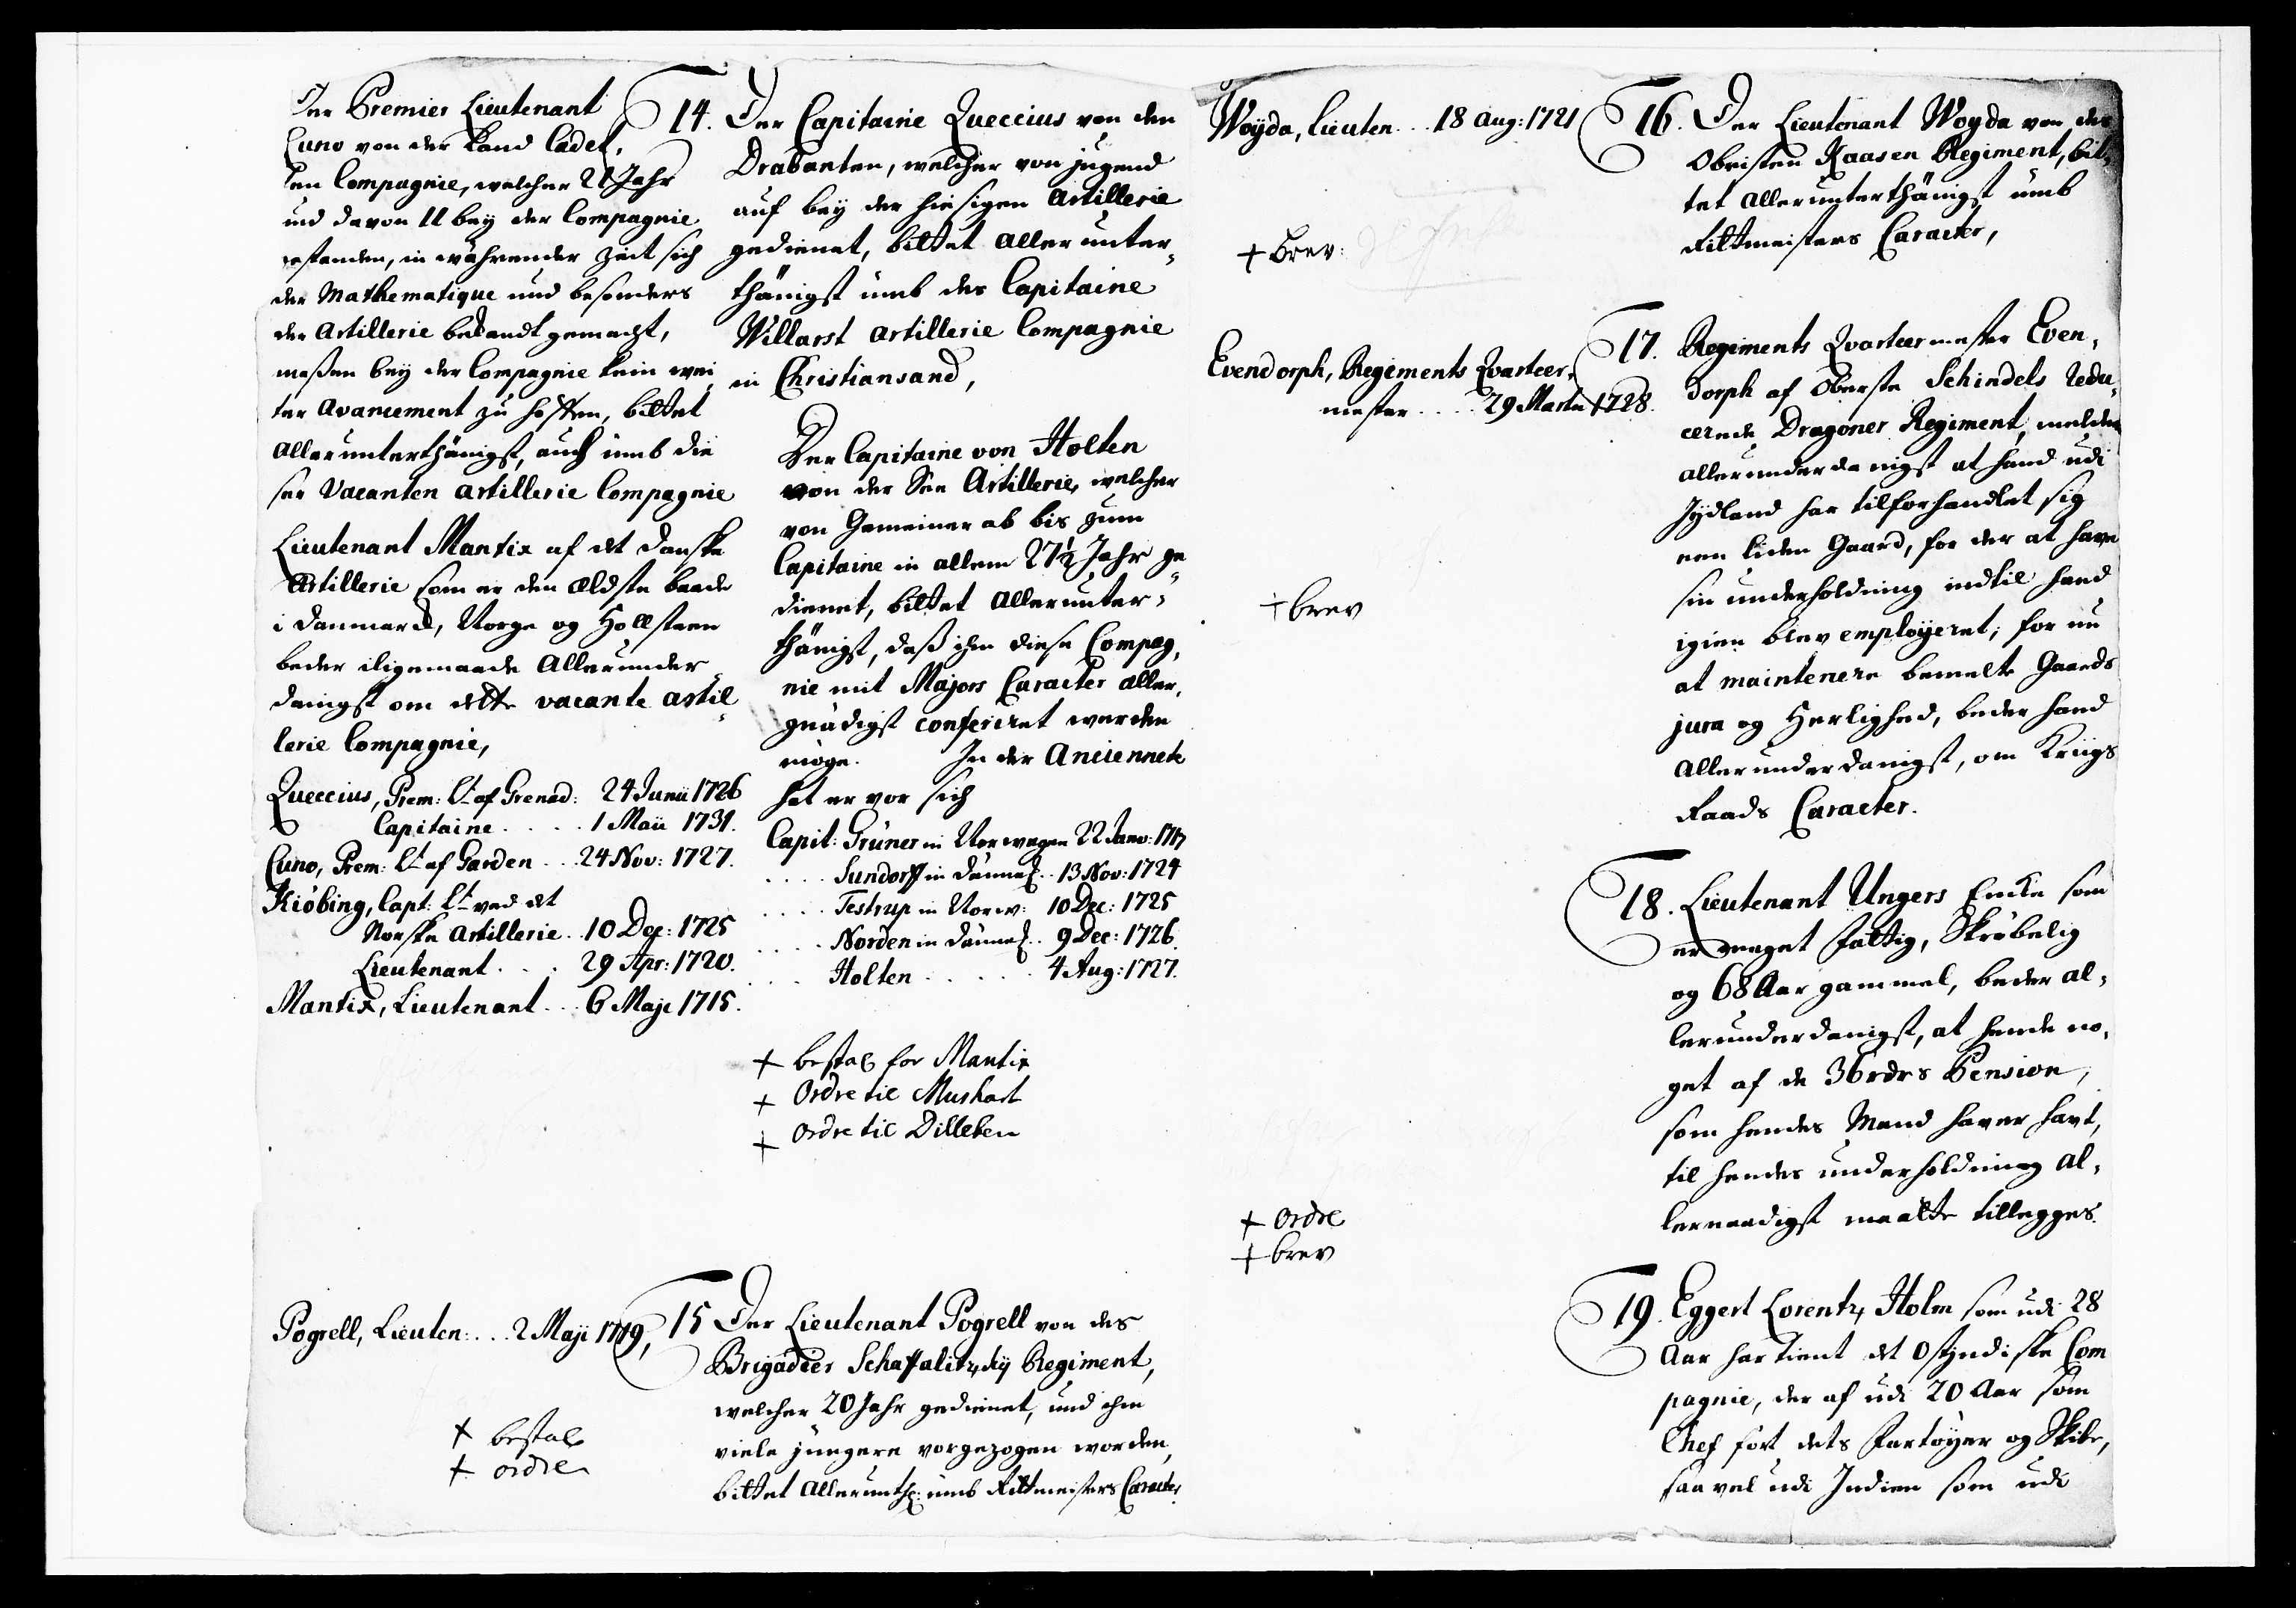 Der Premier Lieutenant
Cuno von der Land Cadet,
ten Compagnie, welcher 21 Jahr
und davon 11 bey der Compagnie
gestanden, in währender Zeit sich
der Mathematique und besonders
der Artillerie bekandt gemacht,
maßen bey der Compagnie kein wei,
ter Avancement zu hoffen, bittet
allerunterthänigst, auch umb die
ser Vacanten Artillerie Compagnie
Lieutenant Mantix af det danske
Artillerie som er den ældste baade
i Danmarck, Norge og Hollsteen
beder iligemaade allerunder„
danigst om dette vacante Artil„
lerie Compagnie,
Queccius, Prem: Lt af Grenad: 24 Junii 1726
Capitaine .... 1 Maii 1731.
Cuno, Prem: Lt af Garden ... 24 Nov: 1727.
Kiöbing, Capt: Lt ved det
Norske Artillerie .. 10 Dec: 1725
Lieutenant ... 29 Apr: 1720.
Mantix, Lieutenant ... 6 Maji 1715.
14. Der Capitaine Queccius von den
Drabanten, welcher von jugend
auf bey der hiesigen Artillerie
gedienet, bittet allerunter„
thänigst umb des Capitaine
Willarst Artillerie Compagnie
in Christiansand,
Der Capitaine von Holten
von der See Artillerie, welcher
von Gemeiner ab bis zum
Capitaine in allem 27½ Jahr ge„
dienet, bittet allerunter„
thänigst, daß ihm diese Compag,
nie mit Majors Caracter aller,
gnädigst conferiret werden
möge. In der Anciennete
hat er vor sich
Capit: Grüner in Norwegen 22 Janv: 1717
.... Sundorff in Dännem. 13 Nov: 1724
.... Testrup in Norw: 10 Dec: 1725
.... Norden in Dännem. 9 Dec: 1726.
.... Holten ..... 4 Aug: 1727.
+ bestal for Mantix
+ Ordre til Mushart
+ Ordre til Dilleben
Pogrell, Lieuten: ... 2 Maji 1719,
+ bestal
+ ordre
15 Der Lieutenant Pogrell von des
Brigadier Schaffalitzky Regiment,
welcher 20 Jahr gedienet, und ihm
viele jüngere vorgezogen worden,
bittet allerunth: umb Rittmeisters Caracter
Woyda, Lieuten ... 18 Aug: 1721
+ brev:
16. Der Lieutenant Woyda von des
Obristen Kaasen Regiment, bit„
tet allerunterthänigst umb
Rittmeisters Caracter,
Evendorph, Regiments Qvarteer„
mester .... 29 Martii 1728.
+ brev
17. Regiments Qvarteermester Even„
dorph af Oberste Schindels redu„
cerede Dragoner Regiment, melder
allerunderdanigst at hand udi
Jydland har tilforhandlet sig
een liden Gaard, for der at have
sin underholdning indtil hand
igien blev employeret; for nu
at maintenere bemelte Gaards
jura og Herlighed, beder hand
allerunderdanigst, om Kriigs
Raads Caracter.
+ Ordre
+ brev
18. Lieutenant Ungers Encke som
er meget fattig, Skröbelig
og 68 Aar gammel, beder al„
lerunderdanigst, at hende no„
get af de 36 rdrs Pension,
som hendes Mand haver havt,
til hendes underholdning al„
lernaadigst maatte tillegges.
19. Eggert Lorentz Holm som udi 28
Aar har tient det Ostjndiske Com
pagnie, der af udi 20 Aar som
Chef fört dets Fartöyer og Skibe,
saavel udi Indien som udi